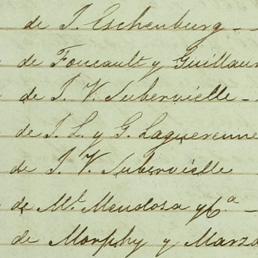 de J. Eschenburg
de Foucault y Guillau
de J. V. Subervielle
de J. L. y G. Laguerenne
de J. V. Subervielle
de Ml. Mendoza y Ca
de Morphy y Marza